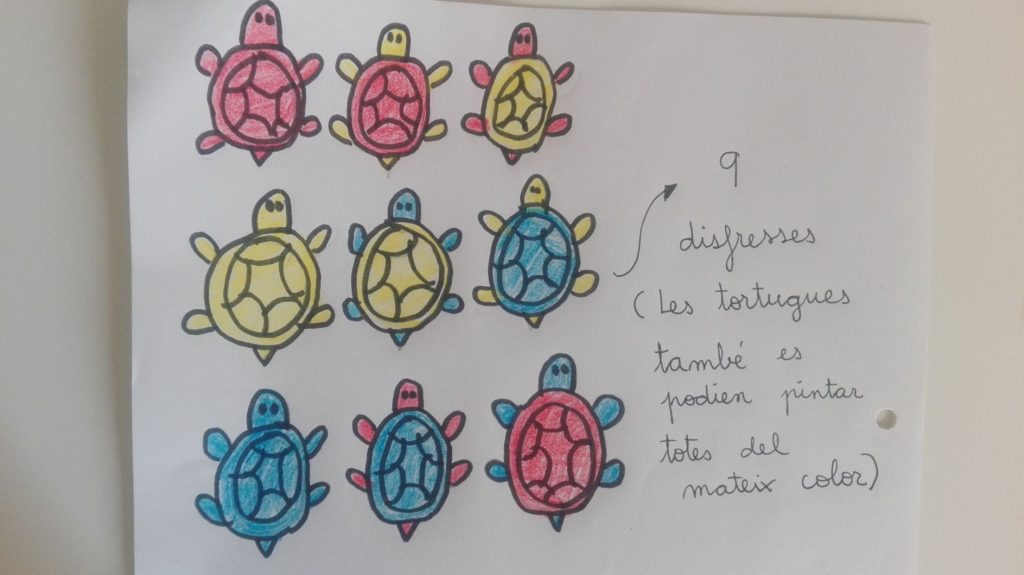 9
disfresses
(Les tortugues
també es
podien pintar
totes del
mateix color)